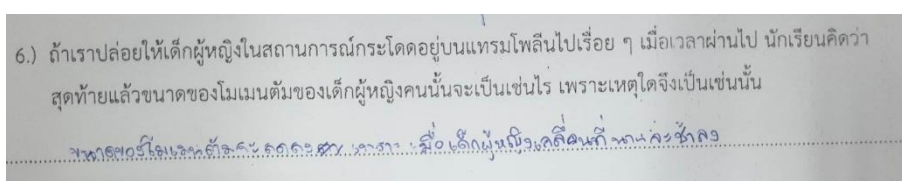 6.) ถ้าเราปล่อยให้เด็กผู้หญิงในสถานการณ์กระโดดอยู่บนแทรมโพลีนไปเรื่อย ๆ เมื่อเวลาผ่านไป นักเรียนคิดว่า
สุดท้ายแล้วขนาดของโมเมนตัมของเด็กผู้หญิงคนนั้นจะเป็นเช่นไร เพราะเหตุใดจึงเป็นเช่นนั้น
ขนาดของโมเมนตัมจะลดลง เพราะ เมื่อเด็กผู้หญิงเคลื่อนที่ นานจะช้าลง